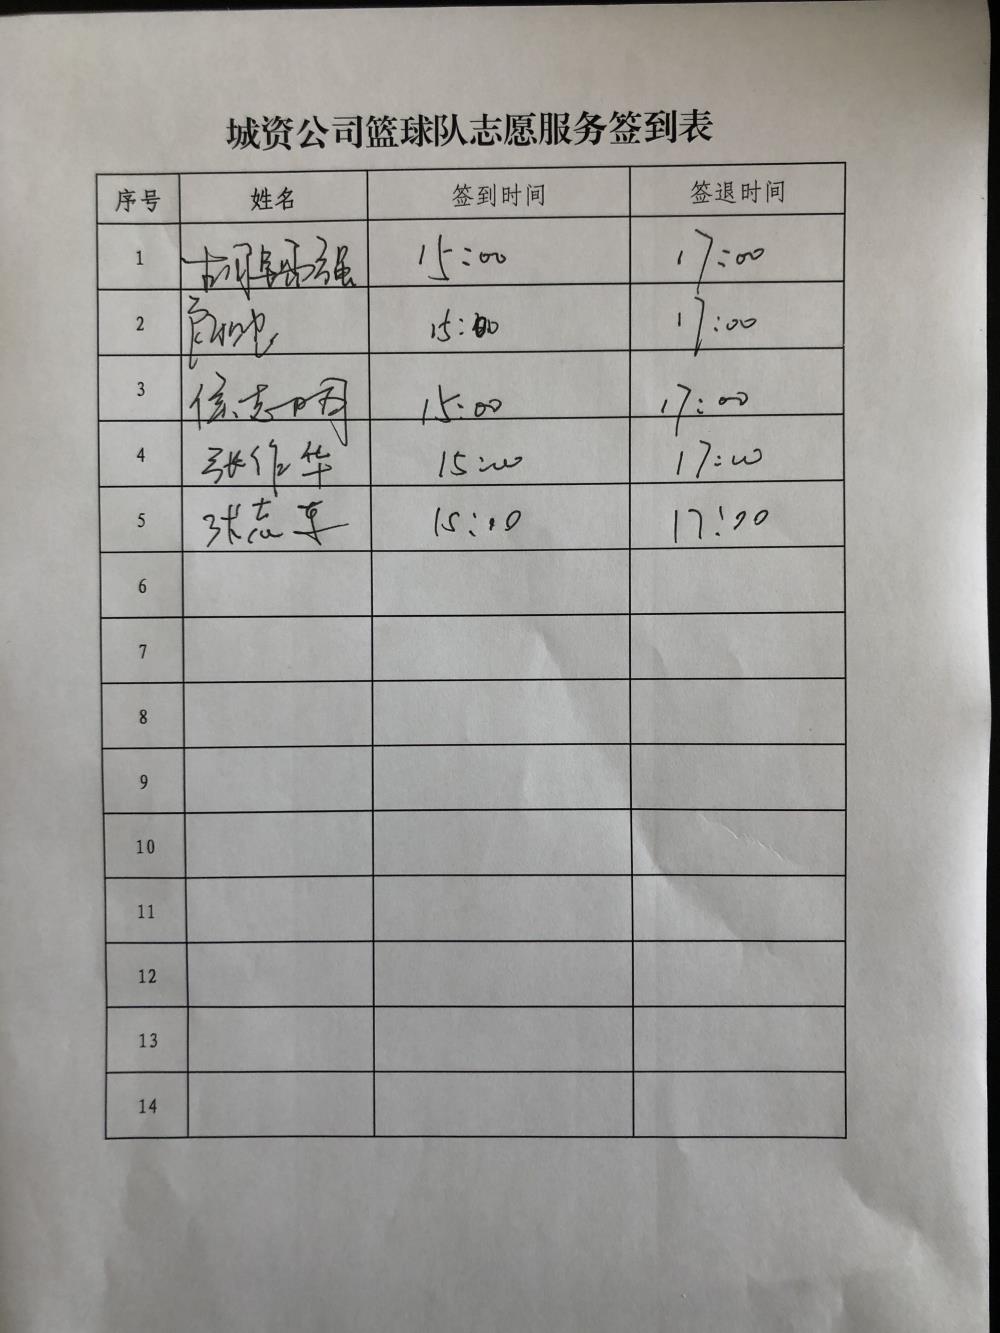 城资公司篮球队志愿服务签到表
序号 姓名 签到时间 签退时间
1 15:00 17:00
2 15:00 17:00
3 15:00 17:00
4 张作华 15:00 17:00
5 张志 15:00 17:00
6
7
8
9
10
11
12
13
14